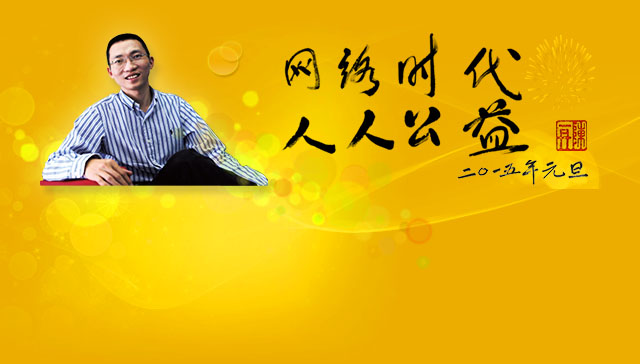 网络时代
人人公益
二〇一五年元旦